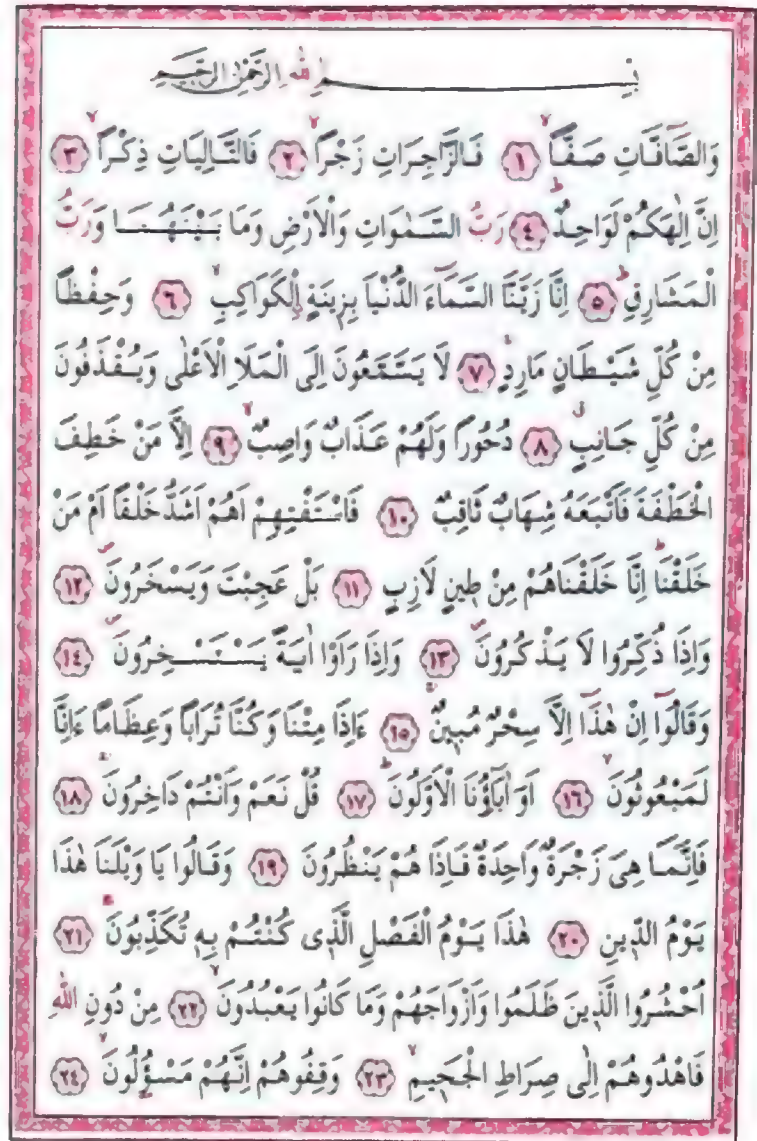 بِسْمِ اللّٰهِ الرَّحْمٰنِ الرَّحٖيمِ
وَالصَّٓافَّاتِ صَفاًّۙ ﴿١﴾ فَالزَّاجِرَاتِ زَجْراًۙ ﴿٢﴾ فَالتَّالِيَاتِ ذِكْراًۙ ﴿٣﴾
اِنَّ اِلٰهَكُمْ لَوَاحِدٌۜ ﴿٤﴾ رَبُّ السَّمٰوَاتِ وَالْاَرْضِ وَمَا بَيْنَهُمَا وَرَبُّ
الْمَشَارِقِۜ ﴿٥﴾ اِنَّا زَيَّنَّا السَّمَٓاءَ الدُّنْيَا بِزٖينَةٍۨ الْكَوَاكِبِۙ ﴿٦﴾ وَحِفْظاً
مِنْ كُلِّ شَيْطَانٍ مَارِدٍۚ ﴿٧﴾ لَا يَسَّمَّعُونَ اِلَى الْمَلَأِ الْاَعْلٰى وَيُقْذَفُونَ
مِنْ كُلِّ جَانِبٍۗ ﴿٨﴾ دُحُوراً وَلَهُمْ عَذَابٌ وَاصِبٌۙ ﴿٩﴾ اِلَّا مَنْ خَطِفَ
الْخَطْفَةَ فَاَتْبَعَهُ شِهَابٌ ثَاقِبٌ ﴿١٠﴾ فَاسْتَفْتِهِمْ اَهُمْ اَشَدُّ خَلْقاً اَمْ مَنْ
خَلَقْنَاۜ اِنَّا خَلَقْنَاهُمْ مِنْ طٖينٍ لَازِبٍ ﴿١١﴾ بَلْ عَجِبْتَ وَيَسْخَرُونَۖ ﴿١٢﴾
وَاِذَا ذُكِّرُوا لَا يَذْكُرُونَۖ ﴿١٣﴾ وَاِذَا رَاَوْا اٰيَةً يَسْتَسْخِرُونَۖ ﴿١٤﴾
وَقَالُٓوا اِنْ هٰذَٓا اِلَّا سِحْرٌ مُبٖينٌۚ ﴿١٥﴾ ءَاِذَا مِتْنَا وَكُنَّا تُرَاباً وَعِظَاماً ءَاِنَّا
لَمَبْعُوثُونَۙ ﴿١٦﴾ اَوَاٰبَٓاؤُنَا الْاَوَّلُونَۜ ﴿١٧﴾ قُلْ نَعَمْ وَاَنْتُمْ دَاخِرُونَۚ ﴿١٨﴾
فَاِنَّمَا هِيَ زَجْرَةٌ وَاحِدَةٌ فَاِذَا هُمْ يَنْظُرُونَ ﴿١٩﴾ وَقَالُوا يَا وَيْلَنَا هٰذَا
يَوْمُ الدّٖينِ ﴿٢٠﴾ هٰذَا يَوْمُ الْفَصْلِ الَّذٖي كُنْتُمْ بِهٖ تُكَذِّبُونَ۟ ﴿٢١﴾
اُحْشُرُوا الَّذٖينَ ظَلَمُوا وَاَزْوَاجَهُمْ وَمَا كَانُوا يَعْبُدُونَۙ ﴿٢٢﴾ مِنْ دُونِ اللّٰهِ
فَاهْدُوهُمْ اِلٰى صِرَاطِ الْجَحٖيمِۙ ﴿٢٣﴾ وَقِفُوهُمْ اِنَّهُمْ مَسْؤُ۫لُونَۙ ﴿٢٤﴾